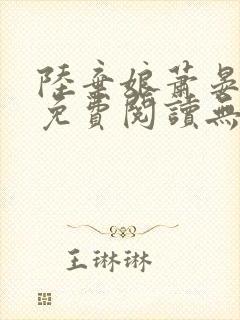 陸棄娘蕭晏
免費閱讀無
王琳琳